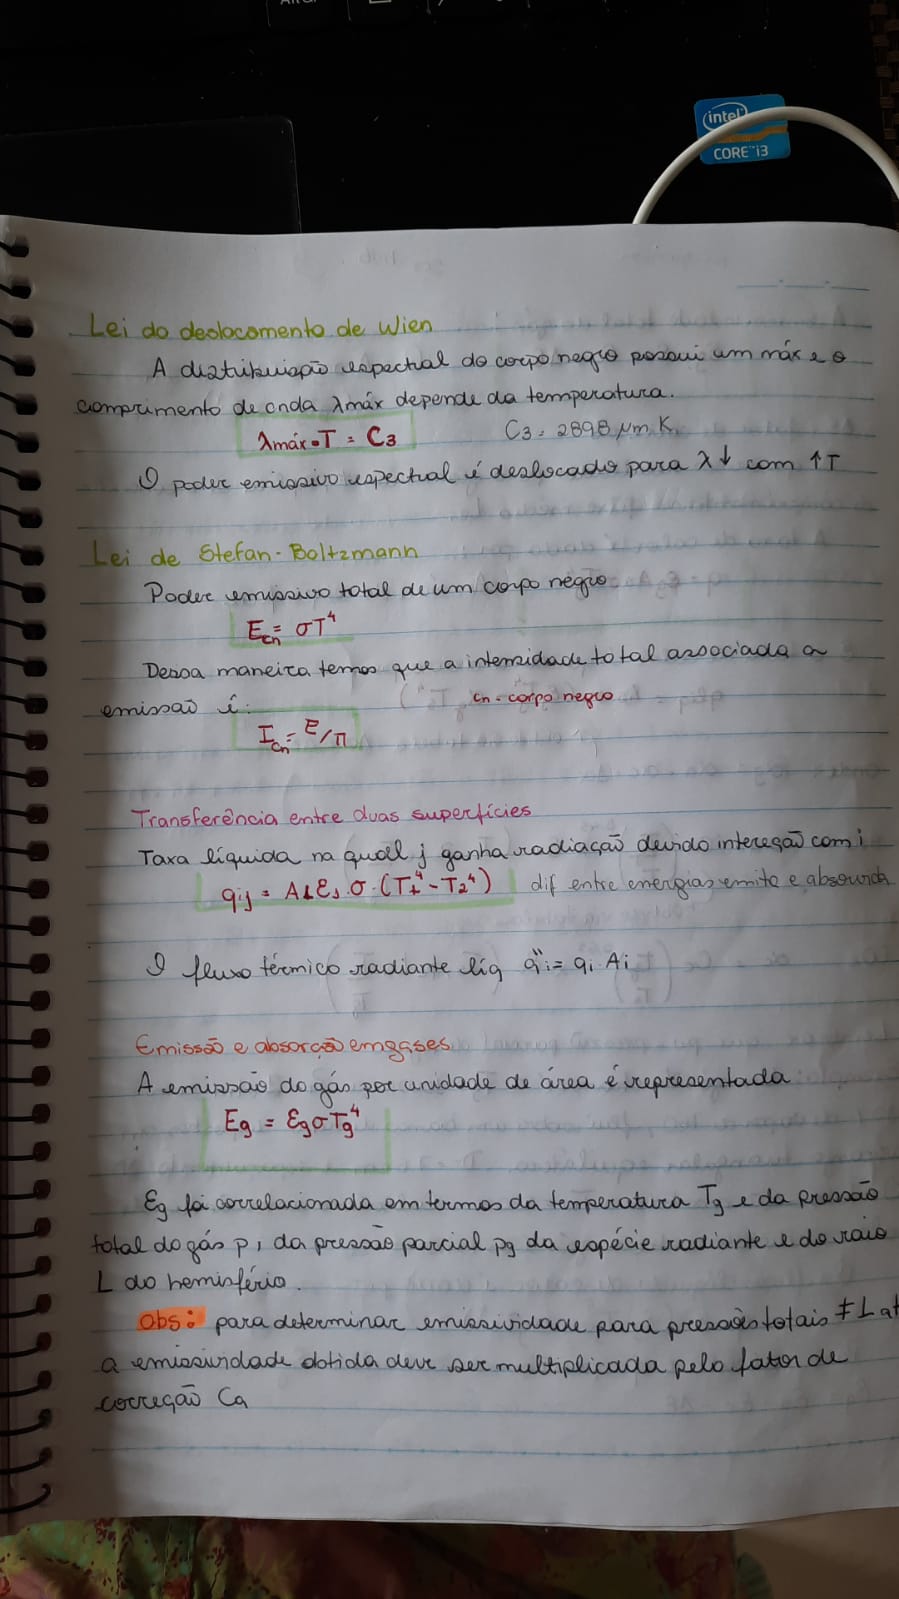 intel
CORE i3
Lei do deslocamento de Wien
A distribuição espectual do corpo negro possui um máx e o
comprimento de onda λmáx depende da temperatura.
λmáx•T = C3 C3 = 2898 μm.K
O poder emissivo espectral é deslocado para λ↓ com ↑T
Lei de Stefan-Boltzmann
Poder emissivo total de um corpo negro
Ecn = σT⁴
Dessa maneira temos que a intensidade total associada a
cn = corpo negro
emissão é:
Icn = E/π
Transferência entre duas superfícies
Taxa líquida na qual j ganha radiação devido intereção com i
qij = A1 ε1 σ·(T1⁴ - T2⁴) dif entre energias emite e absorvida
O fluxo térmico radiante líq q"i = qi Ai
Emissão e absorção em gases
A emissão do gás por unidade de área é representada
Eg = εgσTg⁴
Eg foi correlacionada em termos da temperatura Tg e da pressão
total do gás p, da pressão parcial pg da espécie radiante e do raio
L do hemisfério.
obs: para determinar emissividade para pressões totais ≠ 1 at
a emissividade obtida deve ser multiplicada pelo fator de
correção Ca